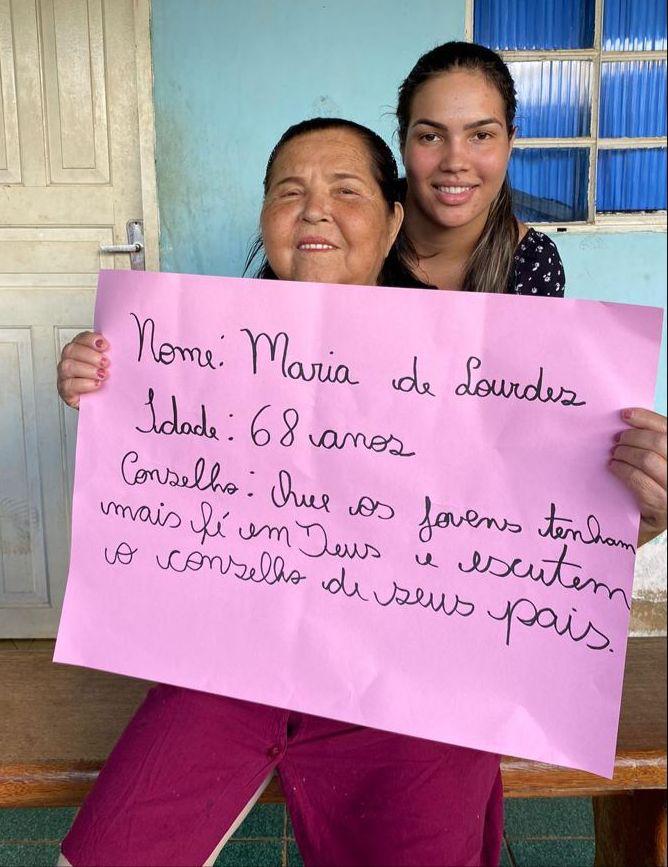 Nome: Maria de Lourdes
Idade: 68 anos
Conselho: Que os jovens tenham
mais fé em Deus e escutem
o conselho de seus pais.